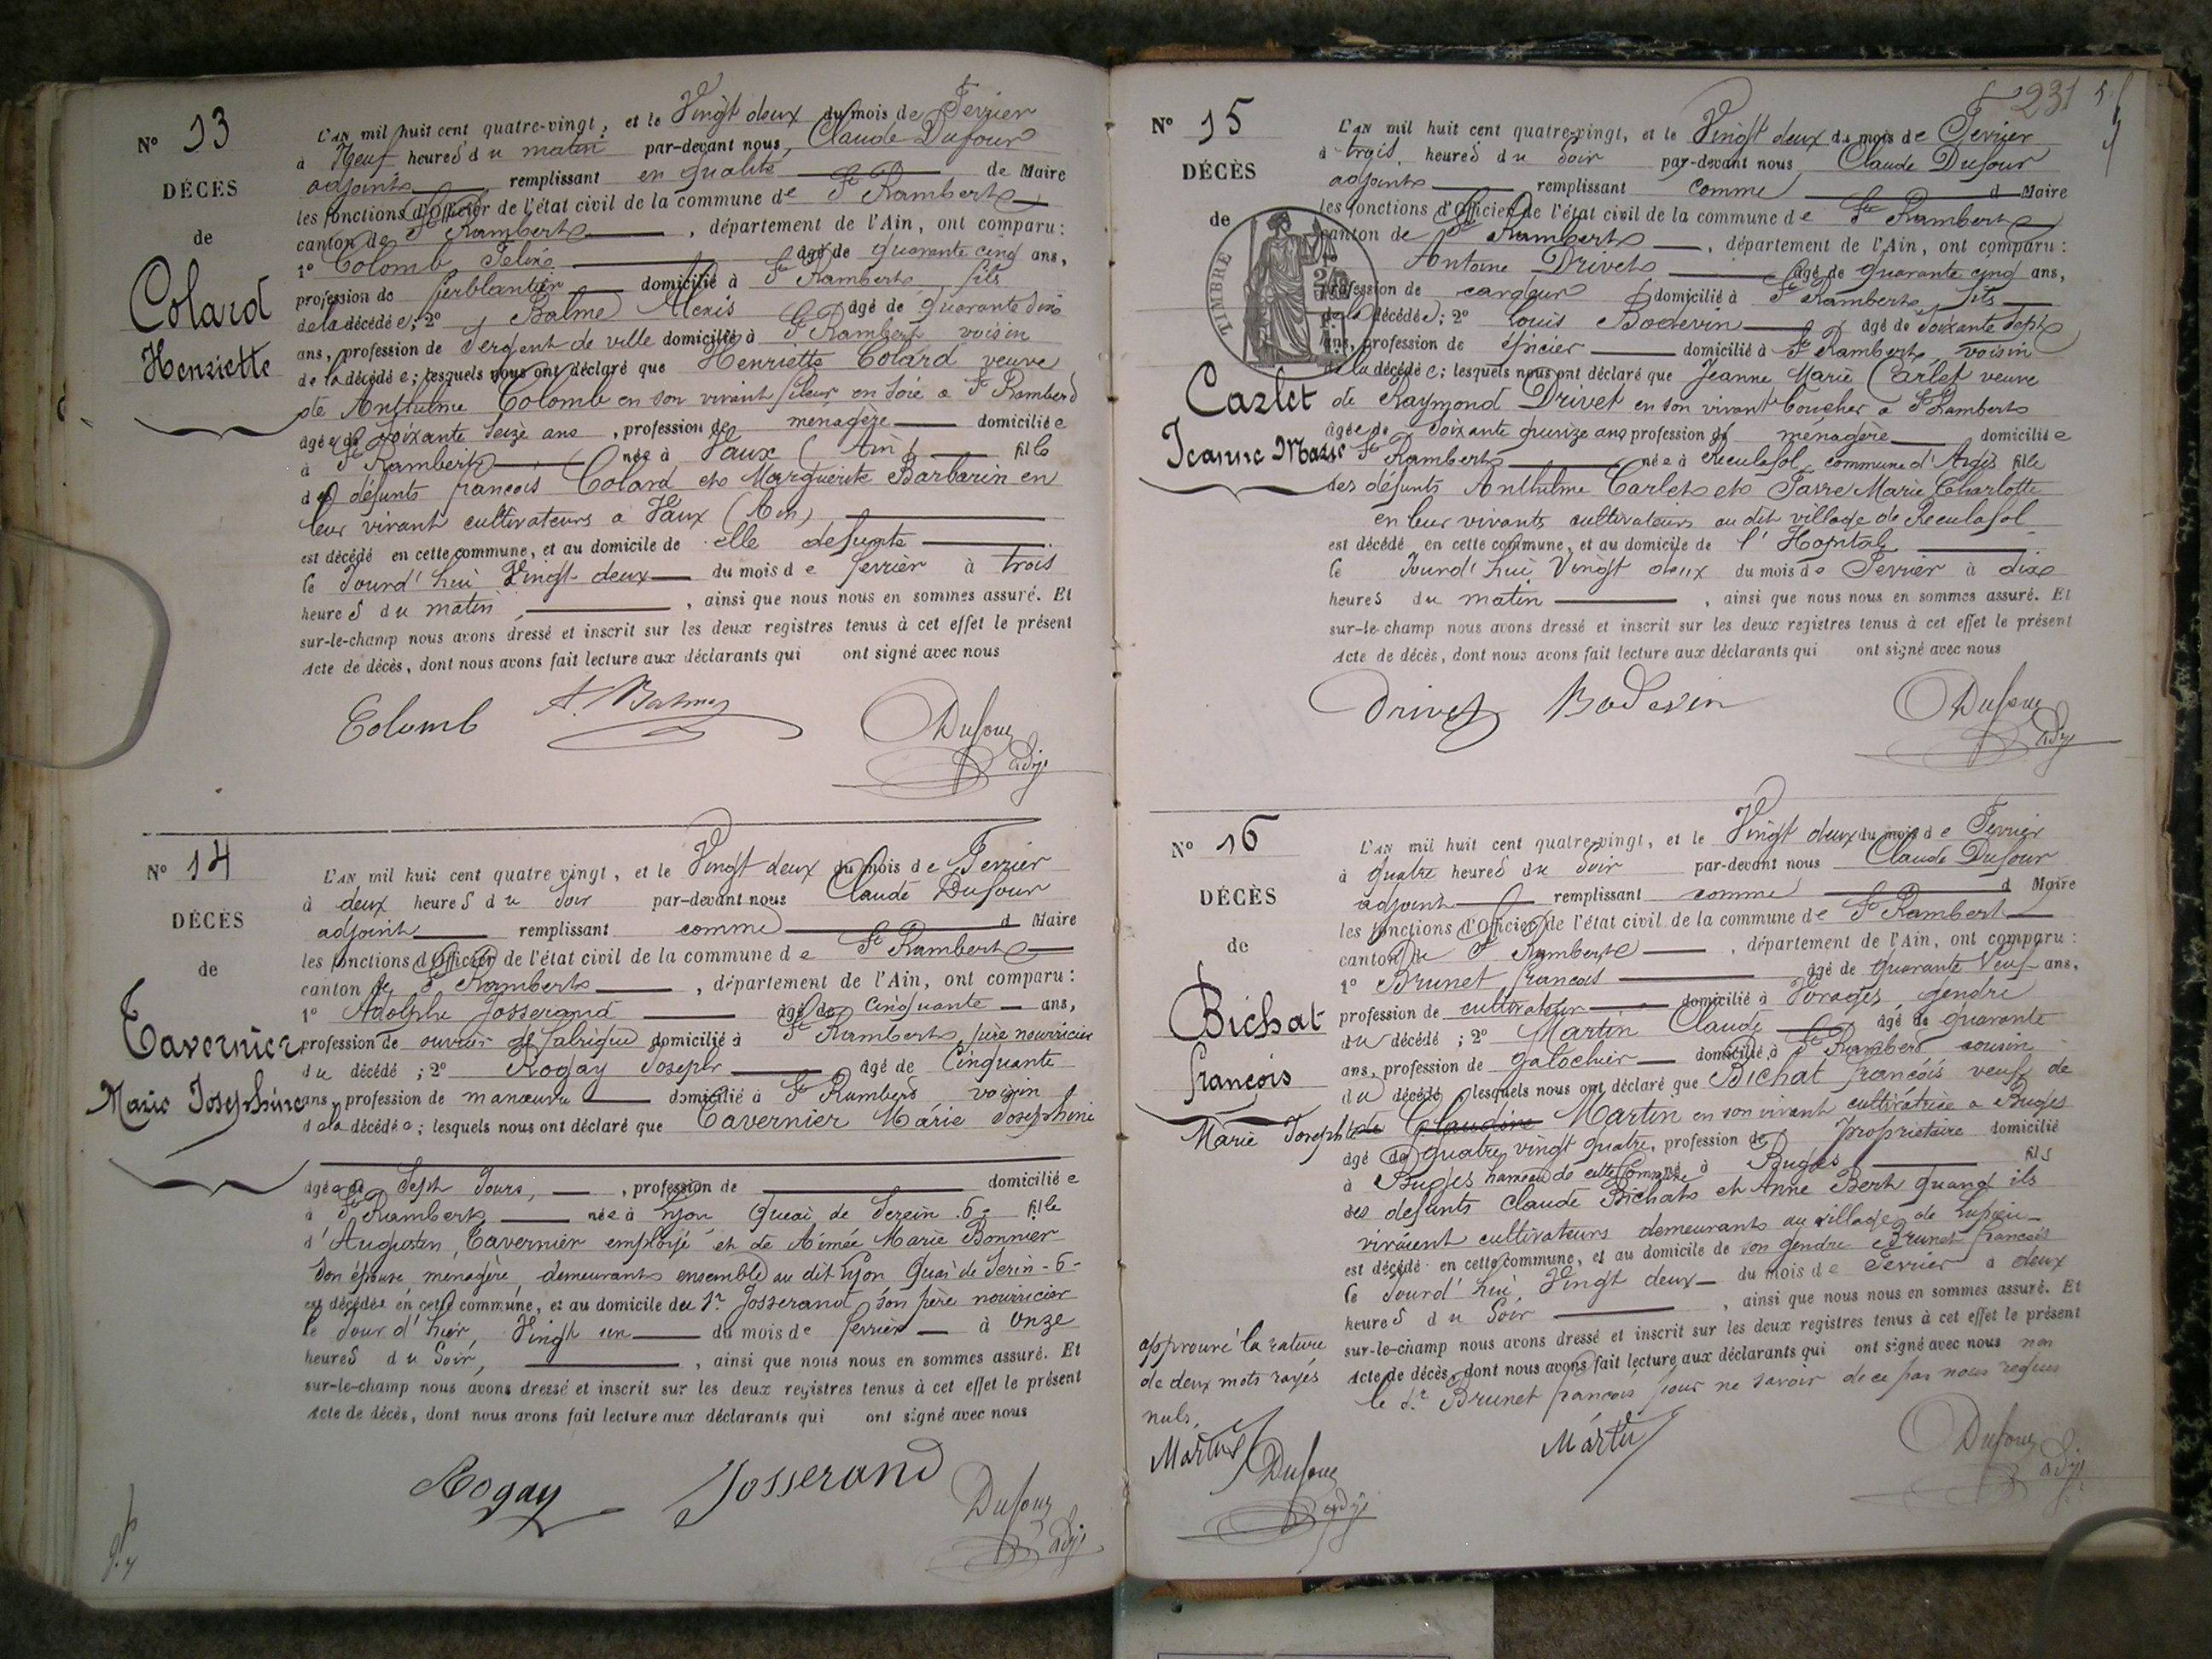 N° 13
DÉCÈS
de
Colard
Henriette
L'AN mil huit cent quatre-vingt, et le Vingt deux du mois de Fevrier
à Neuf heures du matin par-devant nous, Claude Dufour
adjoint remplissant en qualité de Maire
les fonctions d'Officier de l'état civil de la commune de St Rambert
canton de St Rambert, département de l'Ain, ont comparu:
1° Colomb Felix âgé de quarante cinq ans,
profession de ferblantier domicilié à St Rambert, fils
de la décédée; 2° Balme Alexis âgé de quarante dix
ans, profession de Sergent de ville domicilié à St Rambert voisin
de la décédée; lesquels nous ont déclaré que Henriette Colard veuve
de Anthelme Colomb en son vivant fileur en soie a St Rambert
âgée de soixante seize ans, profession de ménagère domiciliée
à St Rambert née à Vaux (Ain) fille
des défunts francois Colard et Marguerite Barbarin en
leur vivant cultivateurs a Vaux (Ain)
est décédé en cette commune, et au domicile de elle defunte
le Jourd'hui Vingt deux du mois de fevrier à trois
heures du matin, ainsi que nous nous en sommes assuré. Et
sur-le-champ nous avons dressé et inscrit sur les deux registres tenus à cet effet le présent
Acte de décès, dont nous avons fait lecture aux déclarants qui ont signé avec nous
Colomb A. Balme Dufour
adj.
N° 14
DÉCÈS
de
Tavernier
Marie Josephine
L'AN mil huit cent quatre vingt, et le Vingt deux du mois de Fevrier
à deux heures du soir par-devant nous Claude Dufour
adjoint remplissant comme d Maire
les fonctions d'Officier de l'état civil de la commune de St Rambert
canton de St Rambert, département de l'Ain, ont comparu:
1° Adolphe Josserand âgé de Cinquante ans,
profession de ouvrier de fabrique domicilié à St Rambert, père nourricier
du décédé; 2° Rogay Joseph âgé de Cinquante
ans, profession de manœuvre domicilié à St Rambert voisin
de la décédée; lesquels nous ont déclaré que Tavernier Marie Josephine
âgée de Sept Jours, profession de domiciliée
à St Rambert née à Lyon Quai de Serein 6 fille
d'Augustin Tavernier employé et de Aimée Marie Bonnier
son épouse ménagère, demeurants ensemble au dit Lyon Quai de Serin - 6 -
est décédée en cette commune, et au domicile du Sr. Josserand son père nourricier
le Jour d'hier, Vingt un du mois de fevrier à Onze
heures du Soir, ainsi que nous nous en sommes assuré. Et
sur-le-champ nous avons dressé et inscrit sur les deux registres tenus à cet effet le présent
Acte de décès, dont nous avons fait lecture aux déclarants qui ont signé avec nous
Rogay Josserand Dufour
adj.
231
N° 15
DÉCÈS
de
TIMBRE
Carlet
Jeanne Marie
L'AN mil huit cent quatre-vingt, et le Vingt deux du mois de Fevrier
à trois heures du Soir par-devant nous Claude Dufour
adjoint remplissant comme d Maire
les fonctions d'Officier de l'état civil de la commune de St Rambert
canton de St Rambert, département de l'Ain, ont comparu:
Antoine Drivet âgé de quarante cinq ans,
profession de cardeur domicilié à St Rambert, fils
de la décédée; 2° Louis Bodevin âgé de Soixante Sept
ans, profession de épicier domicilié à St Rambert voisin
de la décédée; lesquels nous ont déclaré que Jeanne Marie Carlet veuve
de Raymond Drivet en son vivant boucher a St Rambert
âgée de Soixante quinze ans profession de ménagère domiciliée
St Rambert née à Reculafol commune d'Argis fille
des défunts Anthelme Carlet et Favre Marie Charlotte
en leur vivants cultivateurs au dit village de Reculafol
est décédé en cette commune, et au domicile de l'Hopital
le Jourd'hui Vingt deux du mois de Fevrier à dix
heures du matin, ainsi que nous nous en sommes assuré. Et
sur-le-champ nous avons dressé et inscrit sur les deux registres tenus à cet effet le présent
Acte de décès, dont nous avons fait lecture aux déclarants qui ont signé avec nous
Drivet Bodevin Dufour
adj.
N° 16
DÉCÈS
de
Bichat
françois
L'AN mil huit cent quatre-vingt, et le Vingt deux du mois de Fevrier
à quatre heures du Soir par-devant nous Claude Dufour
adjoint remplissant comme d Maire
les fonctions d'Officier de l'état civil de la commune de St Rambert
canton de St Rambert, département de l'Ain, ont comparu:
1° Brunet francois âgé de quarante Neuf ans,
profession de cultivateur domicilié à Vorages, gendre
du décédé; 2° Martin Claude âgé de quarante
ans, profession de galochier domicilié à St Rambert cousin
du décédé lesquels nous ont déclaré que Bichat francois veuf de
Marie Josephte de Claudine Martin en son vivant cultivatrice a Buges
âgé de quatre vingt quatre, profession de propriétaire domicilié
à Buges hameau de cette Commune à Buges fils
des defunts Claude Bichat et Anne Bert quand ils
vivaient cultivateurs demeurants au village de Lupieu
est décédé en cette commune, et au domicile de son gendre Brunet francois
le Jourd'hui Vingt deux du mois de Fevrier à deux
heures du Soir, ainsi que nous nous en sommes assuré. Et
sur-le-champ nous avons dressé et inscrit sur les deux registres tenus à cet effet le présent
Acte de décès, dont nous avons fait lecture aux déclarants qui ont signé avec nous non
le Sr. Brunet francois pour ne savoir de ce par nous requis
approuvé la rature
de deux mots rayés
nuls.
Martin Dufour
adj.
Martin Dufour
adj.